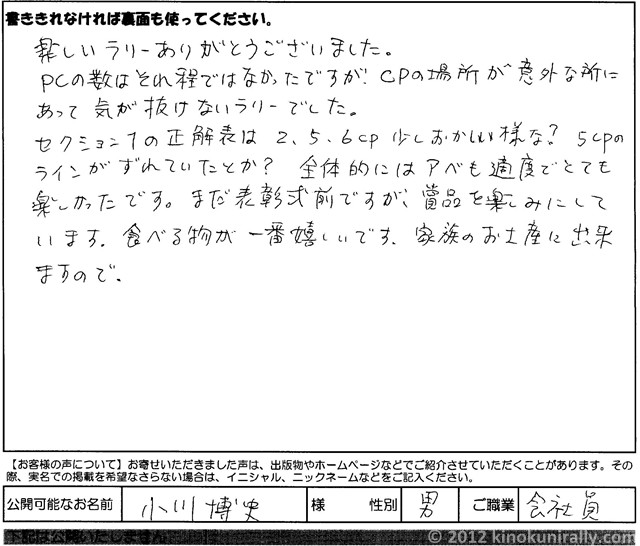 書ききれなければ裏面も使ってください。
楽しいラリーありがとうございました。
PCの数はそれ程ではなかったですが、CPの場所が意外な所に
あって気が抜けないラリーでした。
セクション1の正解表は2、5、6cp少しおかしい様な？5cpの
ラインがずれていたとか？全体的にはアベも適度でとても
楽しかったです。まだ表彰式前ですが、賞品を楽しみにして
います。食べる物が一番嬉しいです、家族のお土産に出来
ますので、
【お客様の声について】お寄せいただきました声は、出版物やホームページなどでご紹介させていただくことがあります。その
際、実名での掲載を希望なさらない場合は、イニシャル、ニックネームなどをご記入ください。
公開可能なお名前 小川博史 様 性別 男 ご職業 会社員
下記は公開いたしません
© 2012 kinokunirally.com